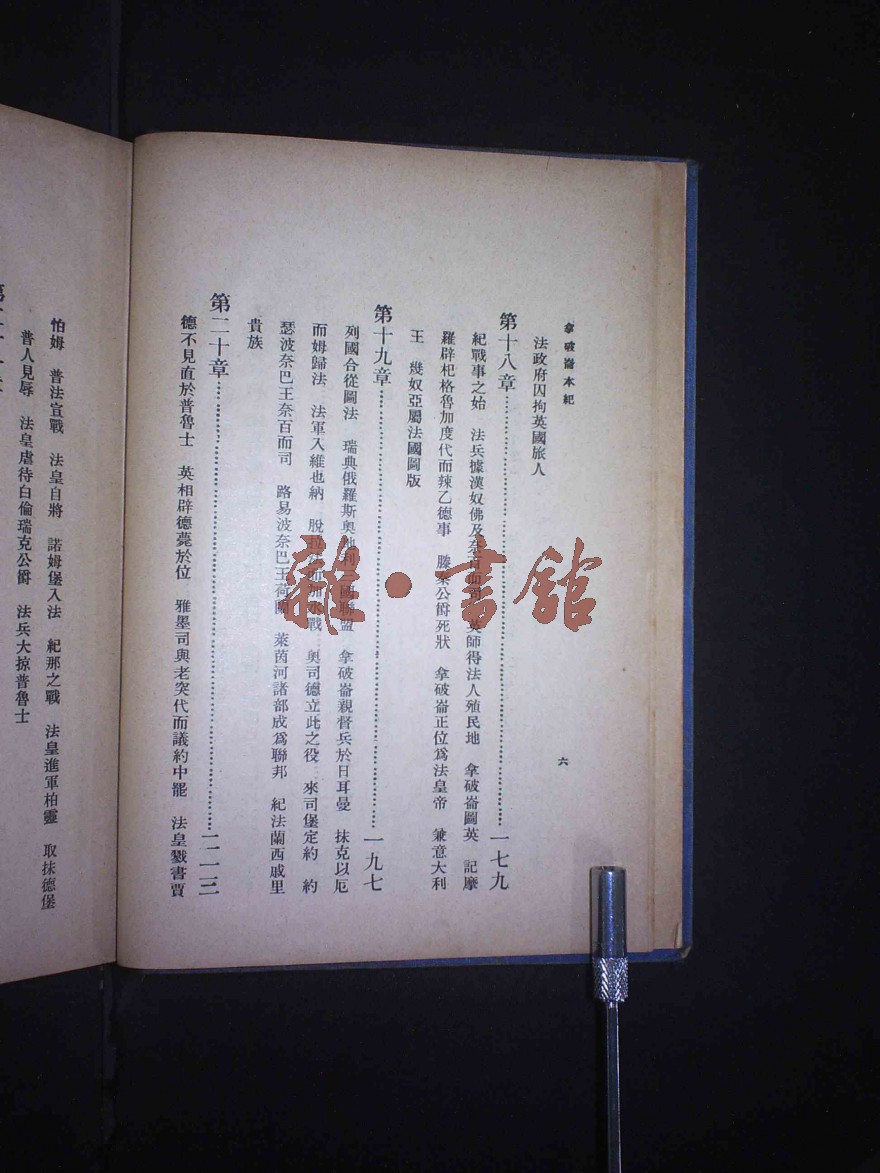 拿破崙本紀
六
法政府囚拘英國旅人
第十八章 一七九
紀戰事之始 法兵據漢奴佛及奈百而司 英師得法人殖民地 拿破崙圖英 記摩
羅辟杞格魯加度代而辣乙德事 滕秦公爵死狀 拿破崙正位爲法皇帝 兼意大利
王 幾奴亞屬法國圖版
第十九章 一九七
列國合從圖法 瑞典俄羅斯奧地利三國聯盟 拿破崙親督兵於日耳曼 抹克以厄
而姆歸法 法軍入維也納 脫拉 而加水戰 奧司德立此之役 來司堡定約 約
瑟波奈巴王奈百而司 路易波奈巴王荷蘭 萊茵河諸部成爲聯邦 紀法蘭西戚里
貴族
第二十章 二一三
德不見直於普魯士 英相辟德薨於位 雅墨司與老突代而議約中罷 法皇戮書賈
怕姆 普法宣戰 法皇自將 諾姆堡入法 紀那之戰 法皇進軍柏靈 取抹德堡
普人見辱 法皇虐待白倫瑞克公爵 法兵大掠普魯士
雜·書館